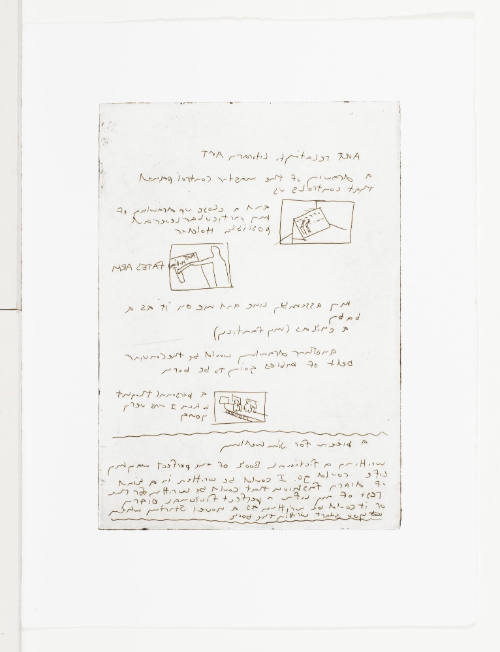 ART literary ART
a drawing of the master control panel
that controls us
and a close up drawing of
my particular lever and
possibly Holder
FATES ARM
my assembly line and me on it as a
baby
a (my fantasy)
another drawing would be the conveyor
belt of babies going to be born
a personal thought
when I was very
young
a for
writing a fictional book of my perfect
life could go. I could be written in a form
of diary that could be written for the
rest of my life a perfect fictional diary
or it could be written as a novel starting when
start writing the book